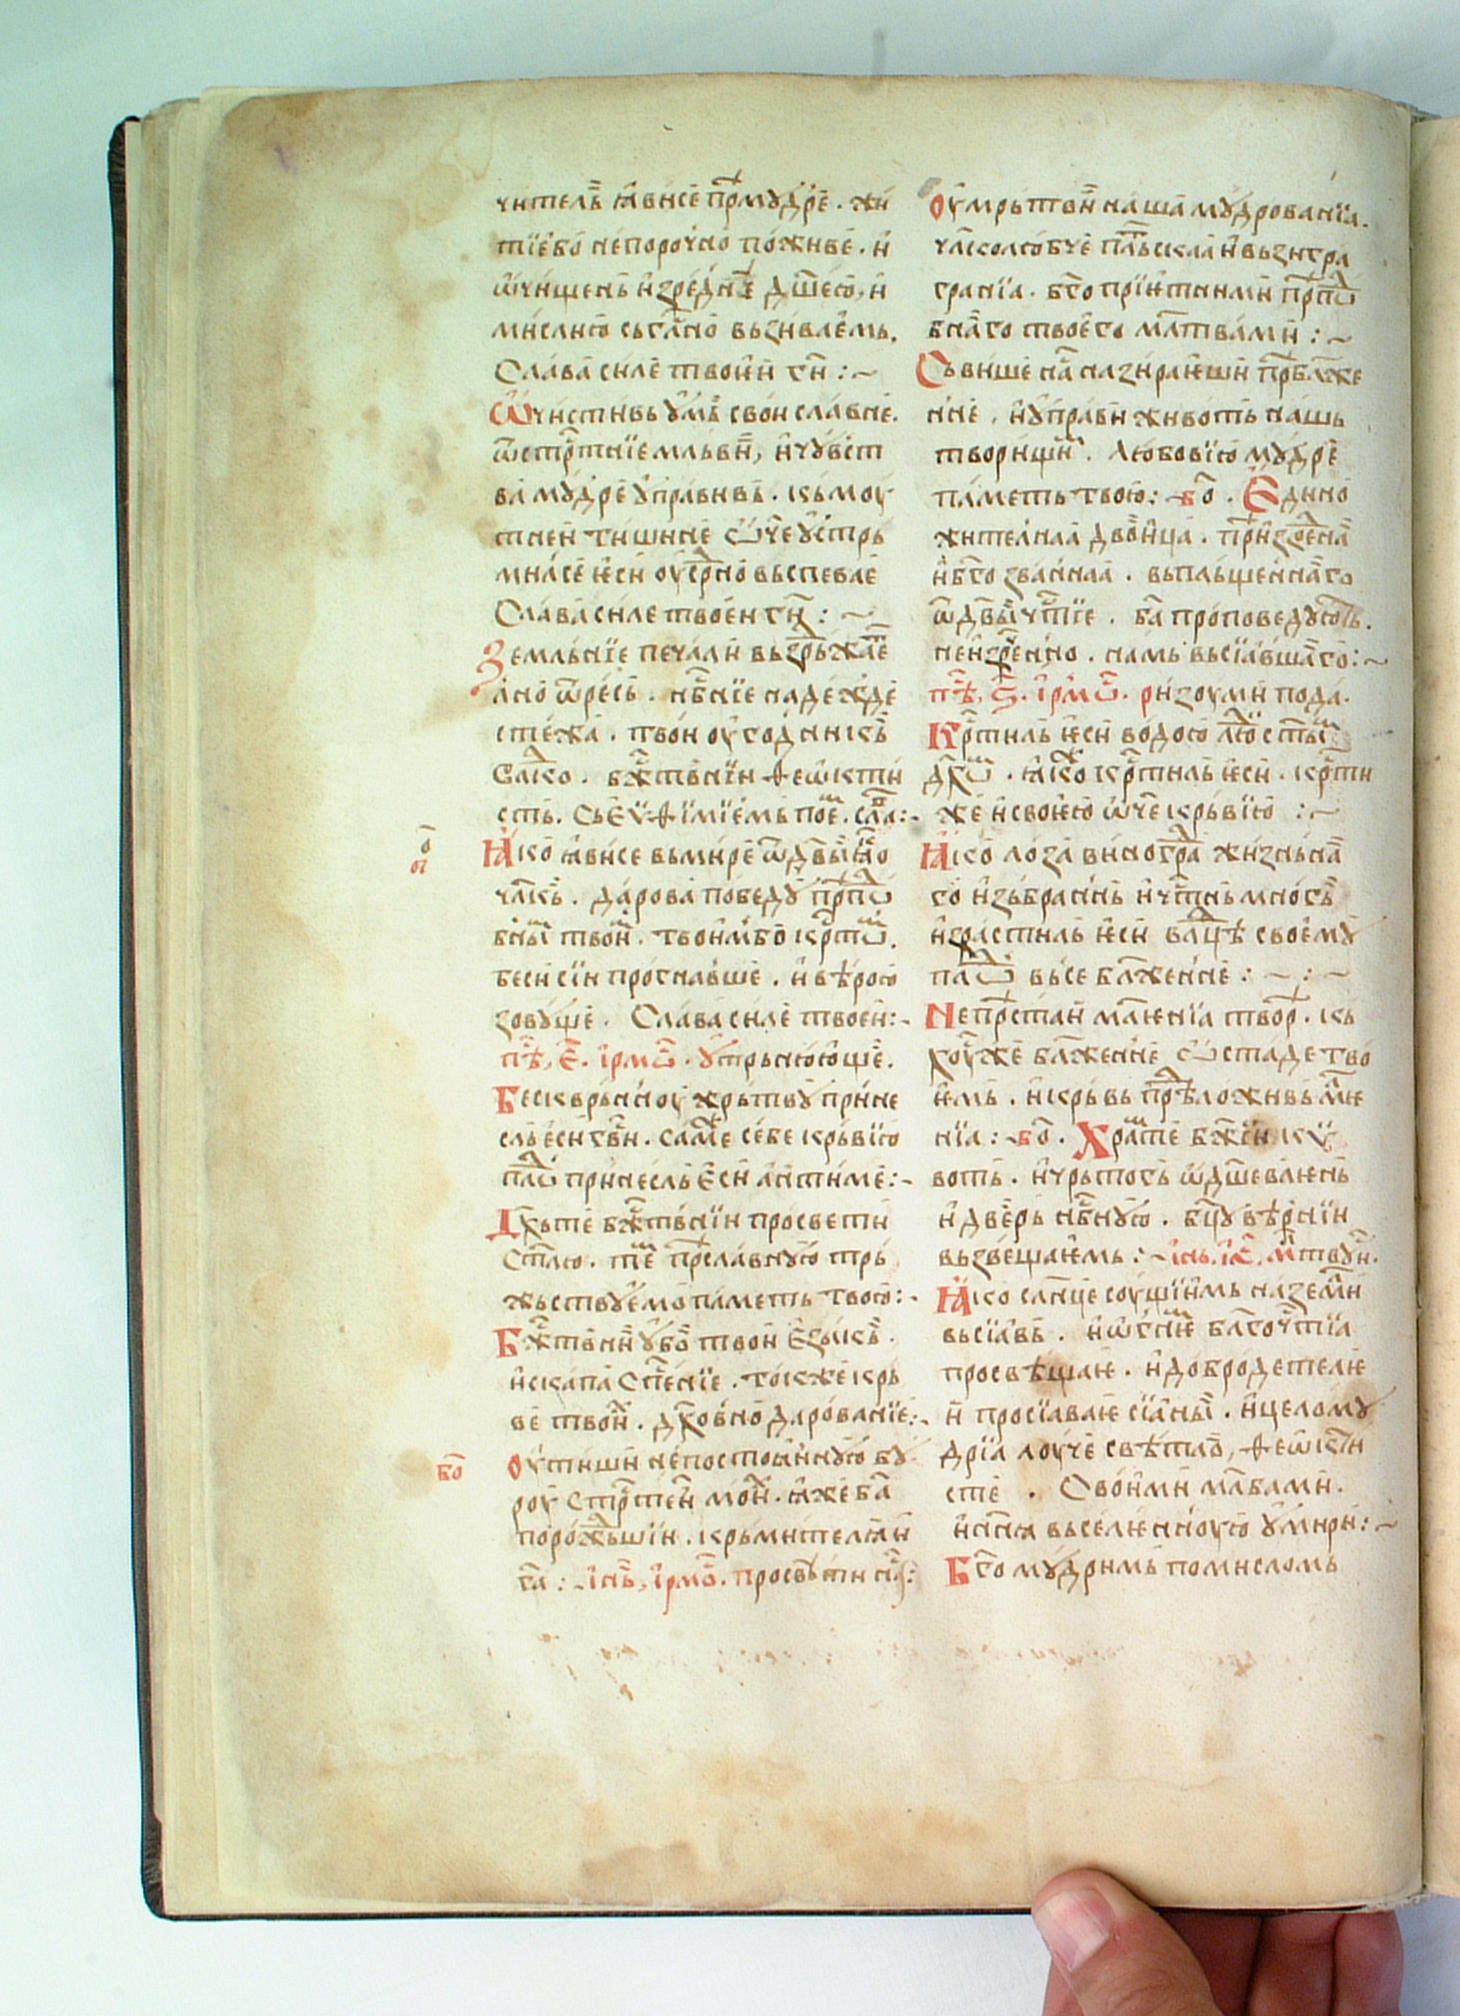 чителꙗ ꙗвисе прⷣмудре . жи
тїе бо непорочно поживе . и
ѡчищень изредне дш҃ею, и
мислию сьгласно вьзивлемь.
Слава силе твоѥи гⷭи :~
Ѡчистивь умь свои славне.
ѿ стрⷭтнїе мльви, и чувст
ва мудре управивь . кь моу
тнеи тишине ѿче устрь
милсе ѥси оусрⷣно вьспевае
Слава силе твоеи гⷭи : ~
Земльнїе печали вьзрьжⷣаⷩїе
ано ѿресь . нбⷭнїе надежде
стежа . твои оугодникь
влⷣко . бжⷭтвнїи ѳеѡкти
сть. Сь еѵѳїмїемь поеⷮ. слаⷡ:~
ꙗко ꙗвисе вьмире ѿ дв҃ы ꙗко
чл҃кь . дарова победу прⷣпⷣо
бнымⷨ твоимⷨ. твоимь бо крⷭтоⷨ.
беси сїи прогнавше . и вѣрою
зовуще . Слава силе твоеи:~
пⷭѣ, е҃. ірмоⷭ. утрьнююще.
Бескврьнноу жрьтву прине
сль еси гв҃и . самⷤе себе крьвїю
плⷪ принесль еси антиме:~
Дх҃ьте бжⷭтвнїи просвети
Ст҃лю. теⷨ преⷭлавнуⷨю трь
жьствуемо паметь твою:~
Бжⷭтвни убо твои езыкь .
искапа сп҃сенїе . токже крь
ве твоеⷨ . дх҃овно дарованїе:~
оутиши непостоꙗнную бу
роу стрⷭтеи моиⷯ . ꙗже ба҃
порожⷣьши . крьмителꙗ и
га҃ : ~ інь, ірмоⷭ. просвѣти наⷭ:
оумрьтви наша мудрованїа.
чл҃колюбче пльⷮскаа и вьзигра
гранїа . бг҃о прїетними прⷣпⷣо
бнаго твоего мл҃твами : ~
Сь више наⷭ назираѥши преⷣблаⷤже
нне . и управи животь нашь
творещиⷨ . любовїю мудре
паметь твою: ~ бо҃ . Едино
жителнаа двоица . прⷣизреⷣнаа
и бг҃о званнаа . вьпльщеннаго
ѿ дв҃ы чⷭтїе . ба҃ проповедують.
неизреⷣнно . намь вьсїавшаго:~
пⷭѣ, ѕ҃. ірмоⷭ. ризоу ми пода.
Крⷭтиль ѥси водою люⷣ стымⷨ
дх҃оⷨ . ꙗкоⷤ крⷭтиль ѥси . крⷭти
же и своѥю ѡче крьвїю : ~
ꙗко лоза виногрⷣа жизньна
го избраннь и чⷭтнь многь
израстиль ѥси влⷣцѣ своему
плⷪ вьсе блⷤженне : ~ : ~
Непрⷭстаи мл҃ѥнїа твореⷭ . кь
хоу же блⷤженне ѿ стаде тво
ѥмь . и крьвь прⷣѣложивь мл҃ѥ
нїа: ~ бо҃ . Храⷨ те бж҃їи кѵ
воть . и чрьтогь ѡдш҃евлѥнь
и дверь нбⷭную . бц҃у вѣрнїи
вьзвещаѥмь: ~ інь. іс҃. млⷭтву и.
ꙗко слн҃це соущїимь на земⷧи
вьсїавь . и ѡгнⷨ блгⷭочⷭтїа
просвѣщаѥ . и добродетелѥ
и просїаваѥ сїаньⷨ . и целому
дрїа лоуче свѣтло , ѳеѡкти
сте . Своими мл҃вами .
и нн҃ꙗ вьселѥнноую умири:~
Бг҃о мудримь помисломь
бо҃